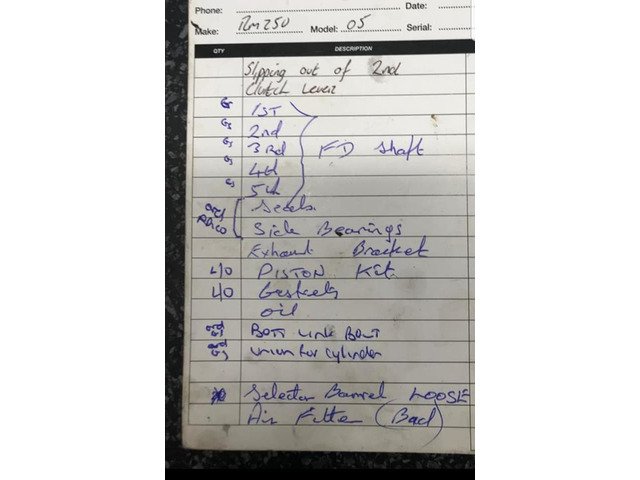 Phone: Date:
Make: Rm250 Model: 05 Serial:
QTY DESCRIPTION
Slipping out of 2nd
Clutch Lever
Gs 1ST
Gs 2nd
Gs 3Rd FD Shaft
Gs 4th
Gs 5th
Seals
Side Bearings
Exhaust Bracket
L/O PISTON Kit
L/O Gaskets
oil
Bott Link Bolt
union for cylinder
Selector Barrel LOOSE
Air Filter (Bad)